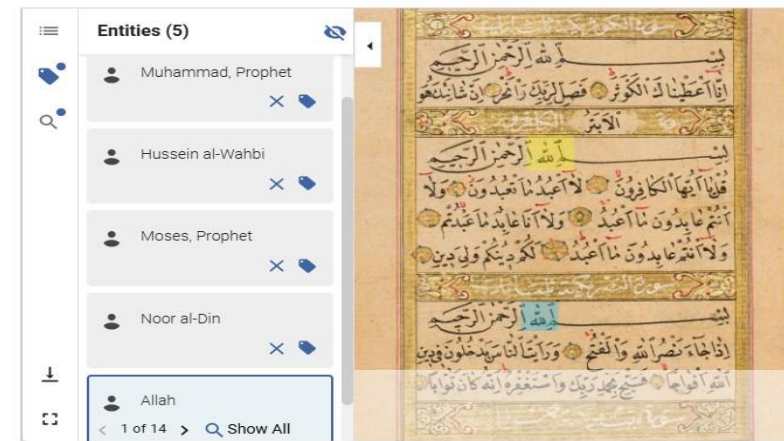 Entities (5)
Muhammad, Prophet
Hussein al-Wahbi
Moses, Prophet
Noor al-Din
Allah
1 of 14
Show All
سورة الكوثر
بِسْمِ اللهِ الرَّحْمٰنِ الرَّحِيمِ
اِنَّا اَعْطَيْنَاكَ الْكَوْثَرَ فَصَلِّ لِرَبِّكَ وَانْحَرْ اِنَّ شَانِئَكَ هُوَ
الْاَبْتَرُ
بِسْمِ اللهِ الرَّحْمٰنِ الرَّحِيمِ
قُلْ يَا اَيُّهَا الْكَافِرُونَ لَا اَعْبُدُ مَا تَعْبُدُونَ وَلَا
اَنْتُمْ عَابِدُونَ مَا اَعْبُدُ وَلَا اَنَا عَابِدٌ مَا عَبَدْتُمْ
وَلَا اَنْتُمْ عَابِدُونَ مَا اَعْبُدُ لَكُمْ دِينُكُمْ وَلِيَ دِينِ
سورة النصر
بِسْمِ اللهِ الرَّحْمٰنِ الرَّحِيمِ
اِذَا جَاءَ نَصْرُ اللهِ وَالْفَتْحُ وَرَاَيْتَ النَّاسَ يَدْخُلُونَ فِي دِينِ
اللهِ اَفْوَاجًا فَسَبِّحْ بِحَمْدِ رَبِّكَ وَاسْتَغْفِرْهُ اِنَّهُ كَانَ تَوَّابًا